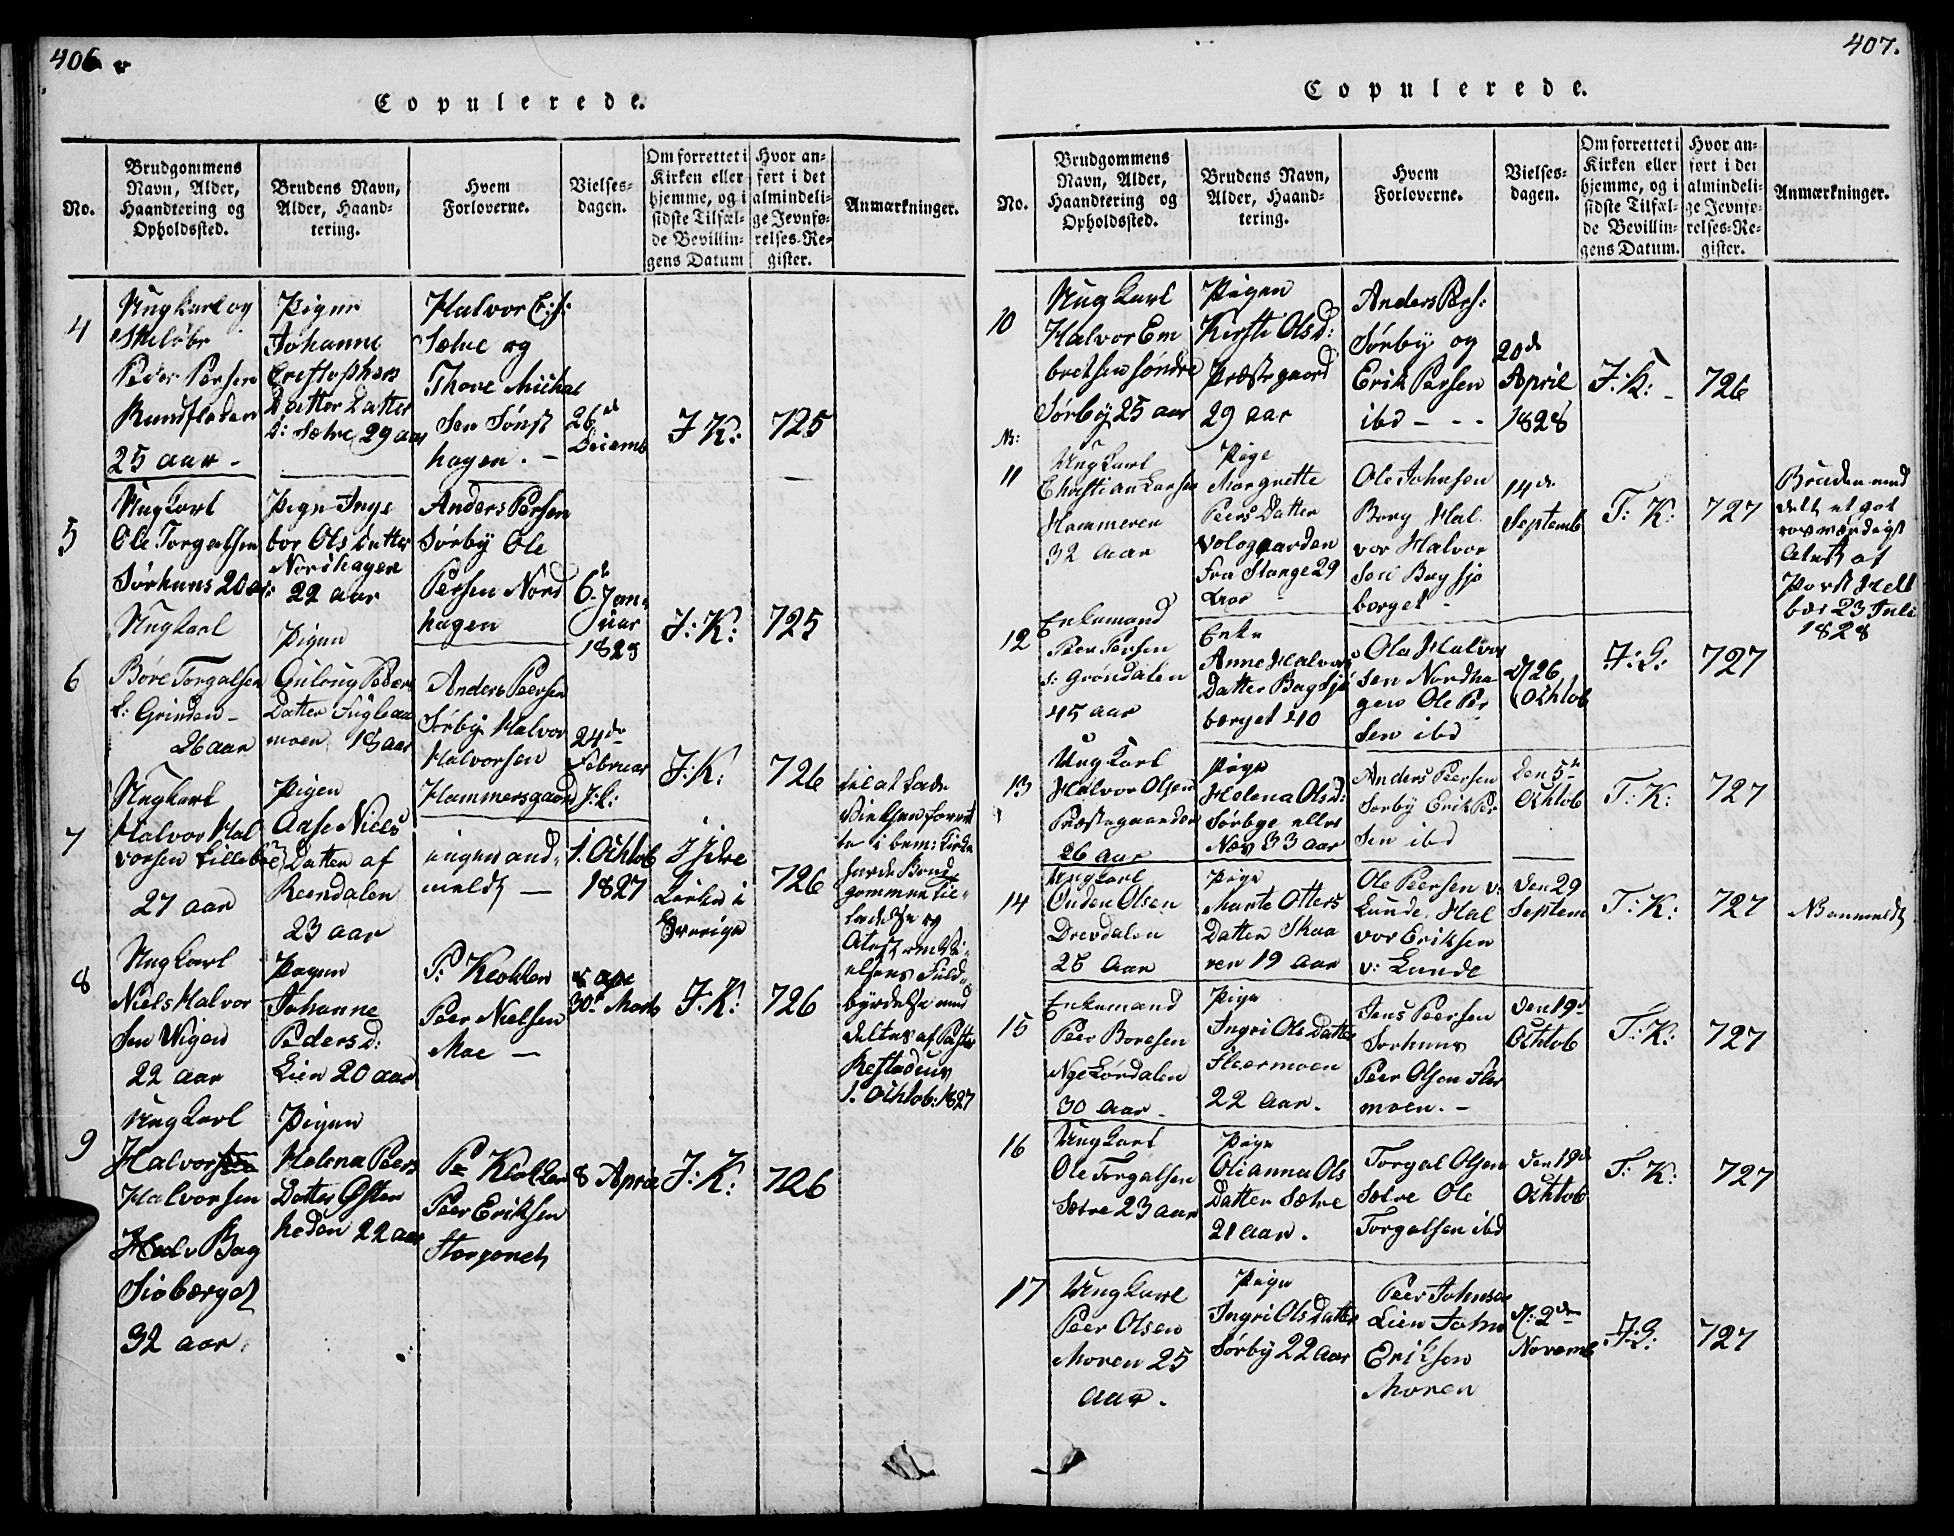 406
Copulerede.
No.
Brudgommens
Navn, Alder,
Haandtering og
Opholdssted.
Brudens Navn,
Alder, Haand-
tering.
Hvem
Forloverne.
Vielses-
dagen.
Om forrettet i
Kirken eller
hjemme, og i
sidste Tilfæl-
de Bevillin-
gens Datum
Hvor an-
ført i det
almindeli-
ge Jevnfø-
relses-Re-
gister.
Anmærkninger.
4
Ungkarl og
Peder Persen
Rundfloden
25 aar -
Pigen
Johanne
Cristophers
Datter
Sætre 29 aar
Halvor E: s:
Sætre og
Thore Michel
Sen Sønst
hagen. -
26 de
Decemb
I K:
725
5
Ungkarl
Ole Torgalsen
Sørhuus 20 aar
Pigen Inge
bor Ols datter
Nordhagen
22 aar
Anders Persen
Sørby Ole
Persen Nord
hagen
6 te Jan-
uar
1828
I: K:
725
6
Ungkarl
Børe Torgalsen
S: Grinden -
26 aar
Pigen
Guloug Peders
Datter Fugleaa
moen 18 aar
Anders Peersen
Sørby Halvor
Halvorsen
Hammersgaard
24 de
Februar
I: K:
726
7
Ungkarl
Halvor Hal
vorsen Lillebre
27 aar
Pigen
Aase Niels
Datter af
Reendalen
23 aar
ingen and-
meldt -
1. Ochtob
1827
I Idre
Kirke i
Sverige
726
til at lade
Vielsen forret
te i bem: Kirke
havde Brud-
gommen til-
ladelse og
Atest om Vi-
elsens Fuld-
byrdelse med
deltes af Pastor
1. Ochtob: 1827
8
Ungkarl
Niels Halvor
Sen Wigen
22 aar
Pigen
Johanne
Peders d:
Lien 20 aar
P: Klokker
Peer Nielsen
Moe -
30 te Marts
I: K:
726
9
Ungkarl
Halvor
Halvorsen
Bag
Siøberget
32 aar
Pigen
Helena Peers
Datter Øster
heden 22 aar
P: Klokker
Peer Eriksen
8 April
I: K:
726
407.
Copulerede.
No.
Brudgommens
Navn, Alder,
Haandtering og
Opholdssted.
Brudens Navn,
Alder, Haand-
tering.
Hvem
Forloverne.
Vielses-
dagen.
Om forrettet i
Kirken eller
hjemme, og i
sidste Tilfæl-
de Bevillin-
gens Datum.
Hvor an-
ført i det
almindeli-
ge Jevnfø-
relses-Re-
gister.
Anmærkninger.
10
Ungkarl
Halvor Em
bretsen søndre
Sørby 25 aar
Pigen
Kirsti Olsd:
Præstegaard
29 aar
Anders Pers:
Sørby og
Erik Persen
ibd - - -
20 de
April
1828
I: K: -
726
N:
11
Ungkarl
Christian Larsen
Hammeren
32 aar
Pige
Margrette
Peers Datter
Vologaarden
fra Stange 29
aar
Ole Johnsen
Borg Hal-
vor Halvor
Sen Bagsjø
berget -
14 de
Septemb
I: K:
727
Bruden med
delt et got
roesværdigt
Atest af
Pørst Hell
bær 23 Juli
1828
12
Enkemand
Peer Persen
s: Grøndalen
45 aar
Enke
Anne Halvors
Datter Bagsjø
berget 40
Ole Halvor
Sen Nordha-
gen Ole Per
Sen ibd
d/ 26
Ochtob
I: S:
727
13
Ungkarl
Halvor Olsen
Præstegaarden
26 aar
Pige
Helena Olsd:
Sørbye eller
Næs 33 aar
Anders Peersen
Sørby Erik Per
Sen ibd
Den 5 te
Ochtob
I: K:
727
14
Ungkarl
Ouden Olsen
Drevdalen
25 aar
Pige
Marte Otters
Datter Skaa
ren 19 aar
Ole Peersen v:
Lunde, Hal
vor Eriksen
v: Lunde
Den 29
Septem
I: K:
727
15
Enkemand
Peer Boresen
Nye Lørdalen
30 aar -
Pige
Ingri Ols Datter
Fleermoen
22 aar.
Jens Peersen
Sørhuus
Peer Olsen Flær
moen. -
Den 19 d
Ochtob
I: K:
727
16
Ungkarl
Ole Torgalsen
Sætre 23 aar
Pige
Olianna Ols
Datter Sætre
21 aar.
Torgal Olsen
Sætre Ole
Torgalsen ibd
Den 19 d
Ochtob
I: K:
727
17
Ungkarl
Peer Olsen
Moren 25
aar.
Pige
Ingri Ols Datter
Sørby 22 aar
Peer Johnsen
Lien John
Eriksen
Moren
d/: 2 den
Novemb
I: S:
727